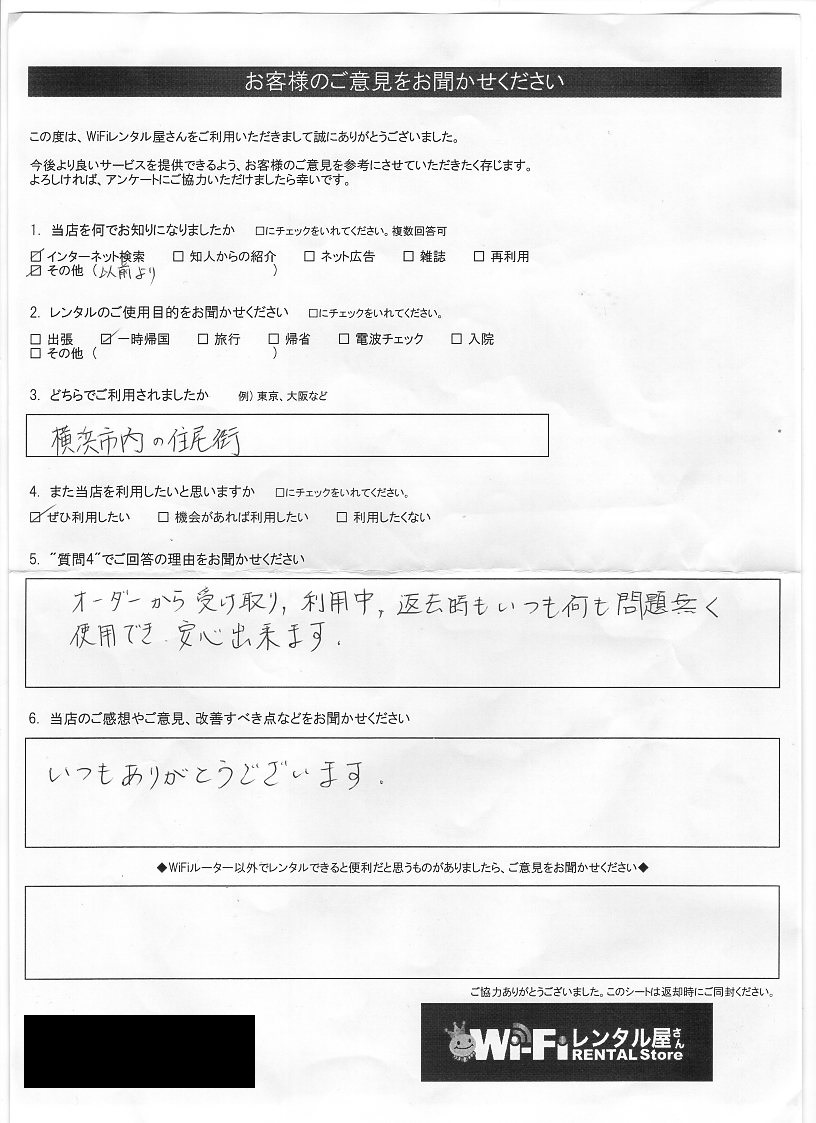 お客様のご意見をお聞かせください
この度は、WiFiレンタル屋さんをご利用いただきまして誠にありがとうございました。
今後より良いサービスを提供できるよう、お客様のご意見を参考にさせていただきたく存じます。
よろしければ、アンケートにご協力いただけましたら幸いです。
1. 当店を何でお知りになりましたか □にチェックをいれてください。複数回答可
☑ インターネット検索 □ 知人からの紹介 □ ネット広告 □ 雑誌 □ 再利用
☑ その他 (以前より )
2. レンタルのご使用目的をお聞かせください □にチェックをいれてください。
□ 出張 ☑ 一時帰国 □ 旅行 □ 帰省 □ 電波チェック □ 入院
□ その他 ( )
3. どちらでご利用されましたか 例) 東京、大阪など
横浜市内の住宅街
4. また当店を利用したいと思いますか □にチェックをいれてください。
☑ ぜひ利用したい □ 機会があれば利用したい □ 利用したくない
5. "質問4"でご回答の理由をお聞かせください
オーダーから受け取り, 利用中, 返去時もいつも何も問題無く
使用でき、安心出来ます.
6. 当店のご感想やご意見、改善すべき点などをお聞かせください
いつもありがとうございます.
◆WiFiルーター以外でレンタルできると便利だと思うものがありましたら、ご意見をお聞かせください◆
ご協力ありがとうございました。このシートは返却時にご同封ください。
Wi-Fiレンタル屋さん
RENTAL Store